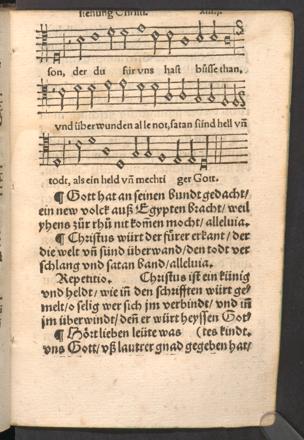 stehung Christi.
son, der du für vns hast büsse than,
vnd überwunden alle not, satan sünd hell vñ
todt, als ein held vñ mechti ger Gott.
¶ Gott hat an seinen bundt gedacht/
ein new volck auß Egypten bracht/ weil
yhens zůr rhů nit kom̃en mocht/ alleluia.
¶ Christus würt der fürer erkant/ der
die welt vñ sünd überwand/ den todt ver
schlang vnd satan band/ alleluia.
Repetitio. Christus ist ein künig
vnd heldt/ wie in̄ den schrifften würt ge-
melt/ o selig wer sich jm verbindt/ vnd in̄
jm überwindt/ deñ er würt heyssen Got
¶ Hört lieben leüte was (tes kindt.
vns Gott/ vß lautrer gnad gegeben hat/